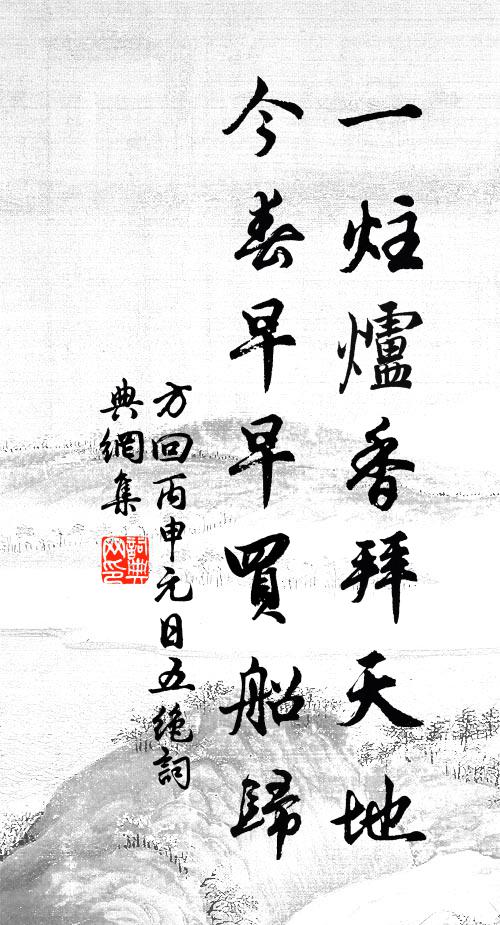 一炷爐香拜天地
今春早早買船歸
方回丙申元日五絶詞
典網集
詞典網印